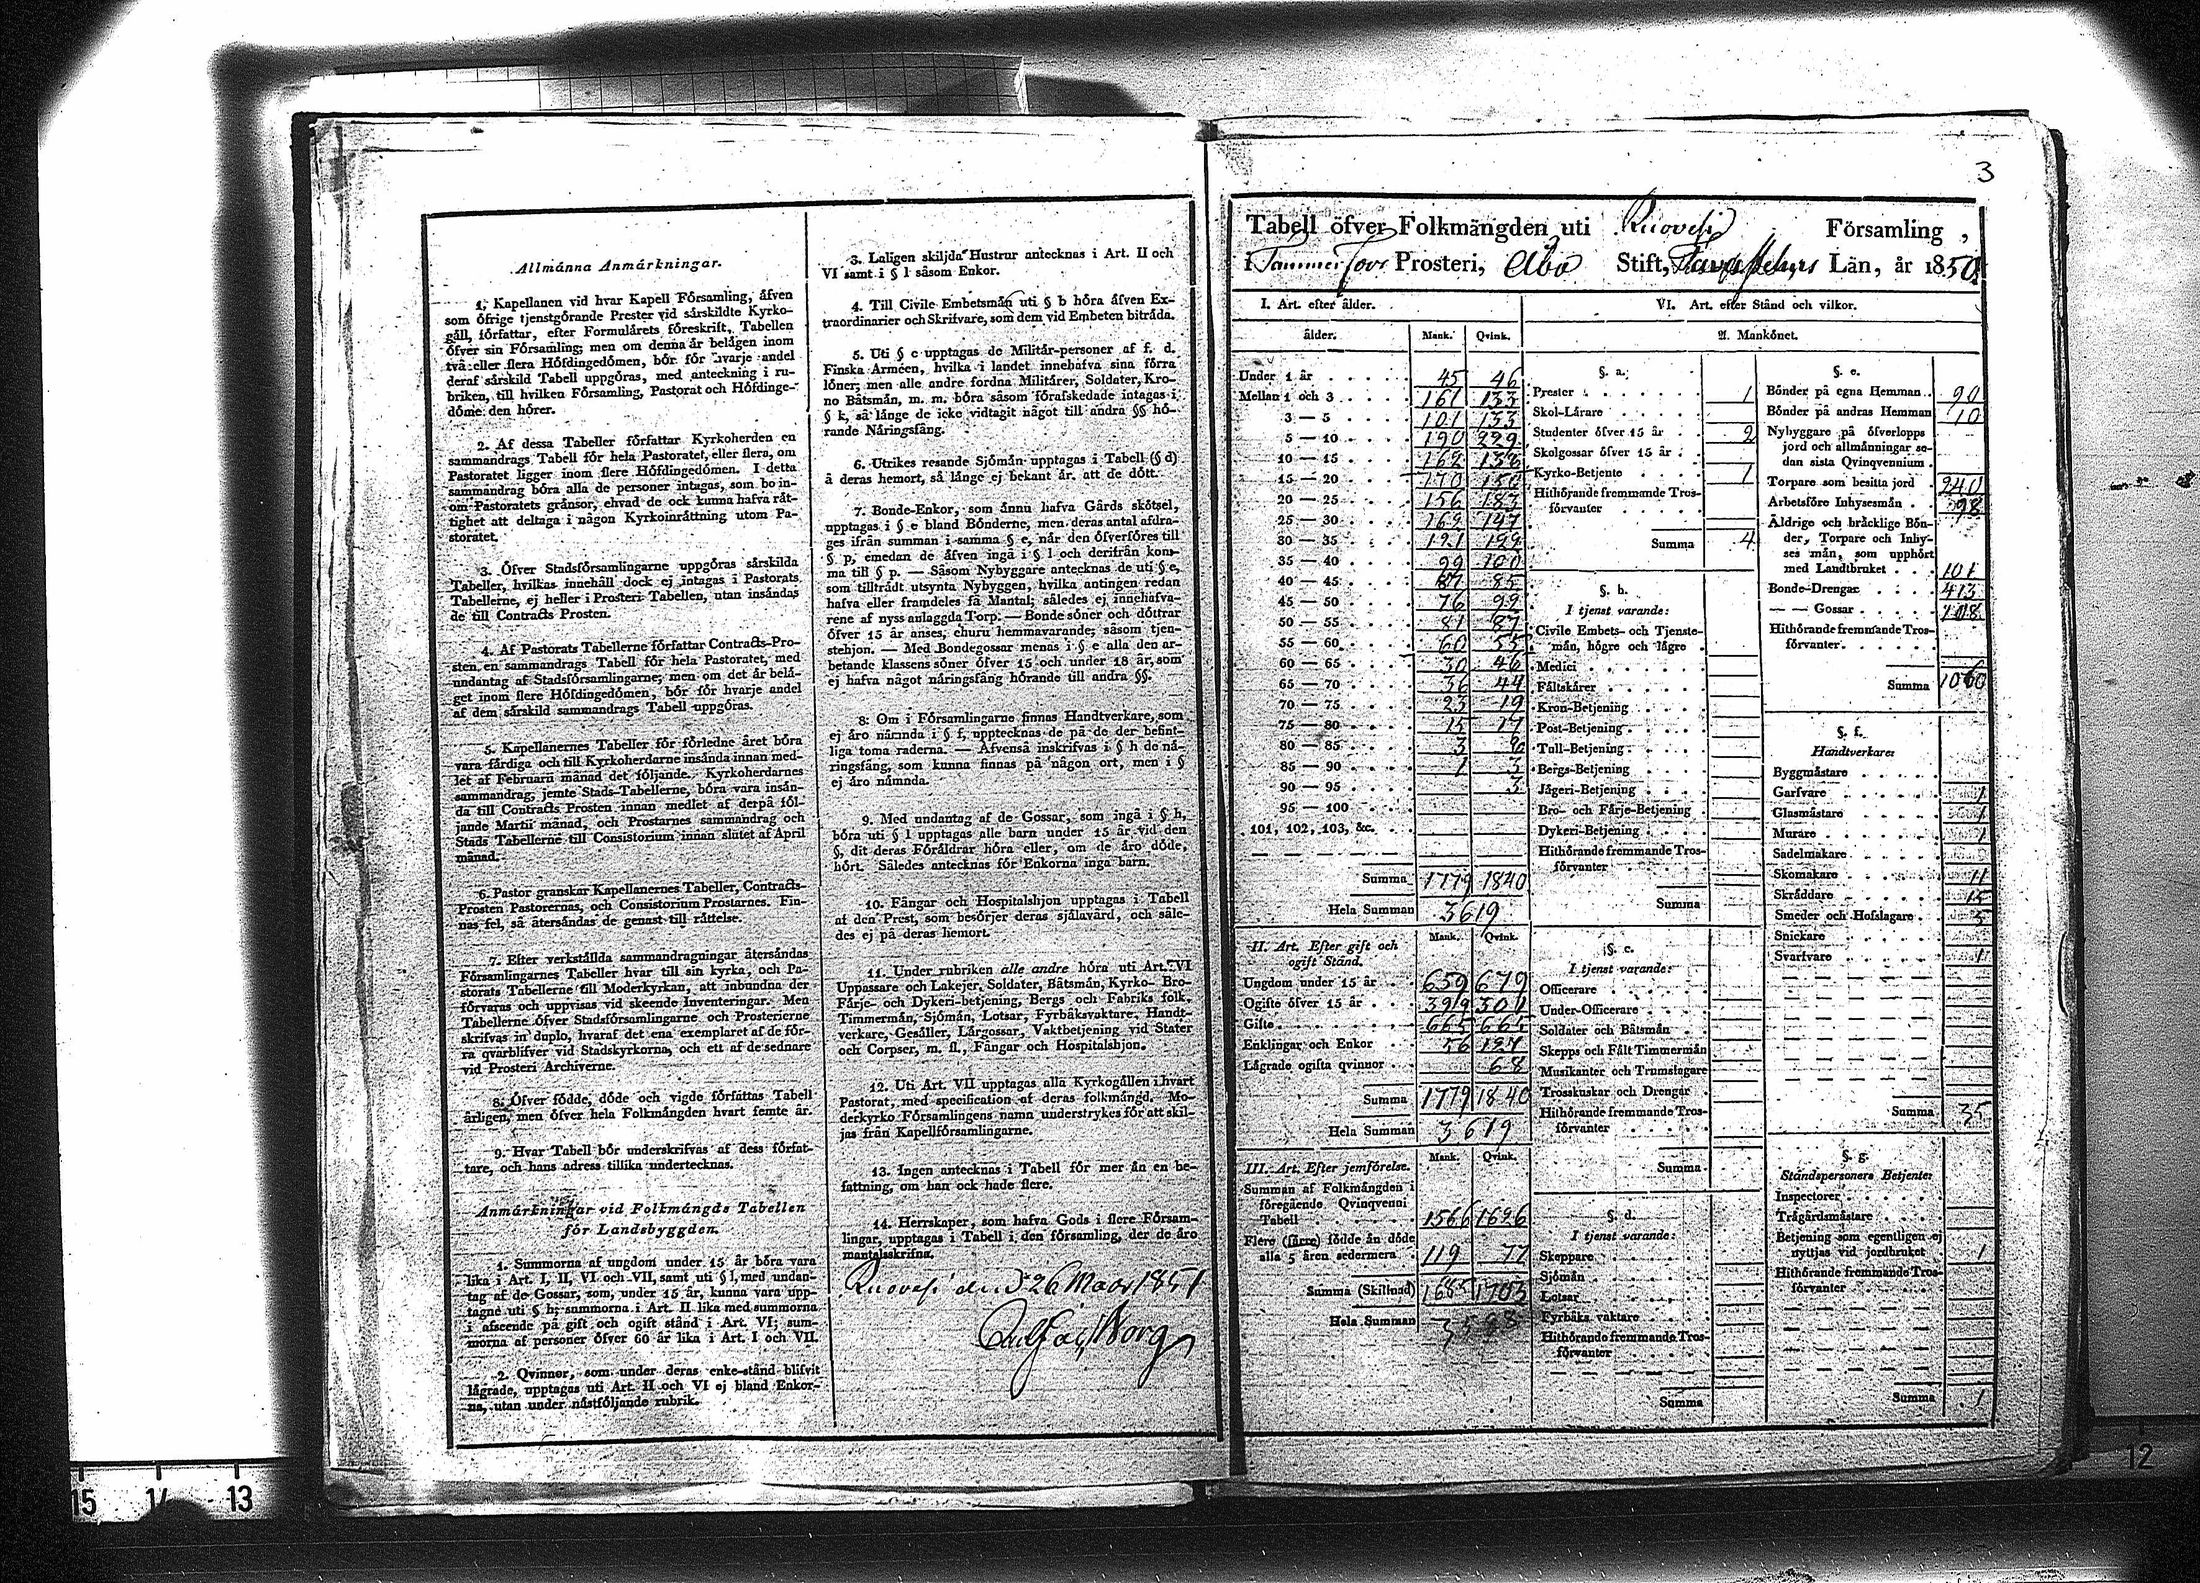 Allmánna Anmárkningar.
1. Kapellanen vid hvar Kapell Församling, áfven
som öfrige tjenstgörande Prester vid sárskildte Kyrko-
gåll, författar, efter Formulárets föreskrift, Tabellen
öfver sin Församling; men om denna ár belågen inom
två eller flera Höfdingedömen, bör för hvarje andel
deraf sárskild Tabell uppgöras, med anteckning i ru-
briken, till hvilken Församling, Pastorat och Höfdinge-
döme den hörer.
2. Af dessa Tabeller författar Kyrkoherden en
sammandrags Tabell för hela Pastoratet, eller flera, om
Pastoratet ligger inom flere Höfdingedömen. I detta
sammandrag böra alla de personer intagas, som bo in-
om Pastoratets gránsor, ehvad de ock kunna hafva rát-
tighet att deltaga i någon Kyrkoinráttning utom Pa-
storatet.
3. Öfver Stadsförsamlingarne uppgöras sárskilda
Tabeller, hvilkas innehåll dock ej intagas i Pastorats
Tabellerne, ej heller i Prosteri Tabellen, utan insándas
de till Contracts Prosten.
4. Af Pastorats Tabellerne författar Contracts-Pro-
sten en sammandrags Tabell för hela Pastoratet, med
undantag af Stadsförsamlingarne; men om det ár belá-
get inom flere Höfdingedömen, bör för hvarje andel
af dem sárskild sammandrags Tabell uppgöras.
5. Kapellanernes Tabeller för förledne året böra
vara fárdiga och till Kyrkoherdarne insánda innan med-
let af Februarii månad det följande. Kyrkoherdarnes
sammandrag, jemte Stads-Tabellerne, böra vara insán-
da till Contracts Prosten innan medlet af derpå föl-
jande Martii månad, och Prostarnes sammandrag och
Stads Tabellerne till Consistorium innan slutet af April
månad.
6. Pastor granskar Kapellanernes Tabeller, Contracts-
Prosten Pastorernas, och Consistorium Prostarnes. Fin-
nas fel, så återsándas de genast till ráttelse.
7. Efter verkstállda sammandragningar återsándas
Församlingarnes Tabeller hvar till sin kyrka, och Pa-
storats Tabellerne till Moderkyrkan, att inbundna der
förvaras och uppvisas vid skeende Inventeringar. Men
Tabellerne öfver Stadsförsamlingarne och Prosterierne
skrifvas in duplo, hvaraf det ena exemplaret af de för-
ra qvarblifver vid Stadskyrkorna, och ett af de sednare
vid Prosteri Archiverne.
8. Öfver födde, döde och vigde författas Tabell
årligen, men öfver hela Folkmángden hvart femte år.
9. Hvar Tabell bör underskrifvas af dess förfat-
tare, och hans adress tillika undertecknas.
Anmárkningar vid Folkmángds Tabellen
för Landsbyggden.
1. Summorna af ungdom under 15 år böra vara
lika i Art. I, II, VI och VII, samt uti § l, med undan-
tag af de Gossar, som, under 15 år, kunna vara upp-
tagne uti § h; summorna i Art. II lika med summorna
i afseende på gift och ogift stånd i Art. VI; sum-
morna af personer öfver 60 år lika i Art. I och VII.
2. Qvinnor, som under deras enke-stånd blifvit
lágrade, upptagas uti Art. II och VI ej bland Enkor-
na, utan under nástföljande rubrik.
3. Laligen skiljda Hustrur antecknas i Art. II och
VI samt i § l såsom Enkor.
4. Till Civile Embetsmán uti § b höra áfven Ex-
traordinarier och Skrifvare, som dem vid Embeten bitráda.
5. Uti § c upptagas de Militár-personer af f. d.
Finska Arméen, hvilka i landet innehafva sina förra
löner; men alle andre fordna Militárer, Soldater, Kro-
no Båtsmán, m. m. böra såsom förafskedade intagas i
§ k, så lánge de icke vidtagit något till andra §§ hö-
rande Náringsfáng.
6. Utrikes resande Sjömán upptagas i Tabell (§ d)
å deras hemort, så lánge ej bekant ár, att de dött.
7. Bonde-Enkor, som ánnu hafva Gårds skötsel,
upptagas i § e bland Bönderne, men deras antal afdra-
ges ifrån summan i samma § e, nár den öfverföres till
§ p, emedan de áfven ingå i § l och derifrån kom-
ma till § p. — Såsom Nybyggare antecknas de uti § e,
som tilltrádt utsynta Nybyggen, hvilka antingen redan
hafva eller framdeles få Mantal; således ej innehafva-
rene af nyss anlaggda Torp. — Bonde söner och döttrar
öfver 15 år anses, ehuru hemmavarande, såsom tjen-
stehjon. — Med Bondegossar menas i § e alla den ar-
betande klassens söner öfver 15 och under 18 år, som
ej hafva något náringsfáng hörande till andra §§.
8. Om i Församlingarne finnas Handtverkare, som
ej áro námnda i § f, upptecknas de på de der befint-
liga toma raderna. — Áfvenså inskrifvas i § h de ná-
ringsfáng, som kunna finnas på någon ort, men i §
ej áro námnda.
9. Med undantag af de Gossar, som ingå i § h,
böra uti § l upptagas alle barn under 15 år vid den
§, dit deras Föráldrar höra eller, om de áro döde,
hört. Således antecknas för Enkorna inga barn.
10. Fångar och Hospitalshjon upptagas i Tabell
af den Prest, som besörjer deras sjálavård, och såle-
des ej på deras hemort.
11. Under rubriken alle andre höra uti Art. VI
Uppassare och Lakejer, Soldater, Båtsmán, Kyrko- Bro-
Fárje- och Dykeri-betjening, Bergs och Fabriks folk,
Timmermán, Sjömán, Lotsar, Fyrbåksvaktare, Handt-
verkare, Gesáller, Lárgossar, Vaktbetjening vid Stater
och Corpser, m. fl., Fångar och Hospitalshjon.
12. Uti Art. VII upptagas alla Kyrkogállen i hvart
Pastorat, med specification af deras folkmángd. Mo-
derkyrko Församlingens namn understrykes för att skil-
jas från Kapellförsamlingarne.
13. Ingen antecknas i Tabell för mer án en be-
fattning, om han ock hade flere.
14. Herrskaper, som hafva Gods i flere Försam-
lingar, upptagas i Tabell i den församling, der de áro
mantalsskrifna.
Ruovesi den 26 Mars 1851
3
Tabell öfver Folkmängden uti Ruovesi Församling,
i Tammerfors Prosteri, Åbo Stift, Tavastehus Län, år 1850
I. Art. efter ålder.
ålder. Mank. Qvink.
Under 1 år 45 46
Mellan 1 och 3 161 133
3 — 5 101 133
5 — 10 190 229
10 — 15 162 138
15 — 20 170 150
20 — 25 156 183
25 — 30 162 147
30 — 35 121 122
35 — 40 99 100
40 — 45 87 85
45 — 50 76 99
50 — 55 81 87
55 — 60 60 55
60 — 65 30 46
65 — 70 36 44
70 — 75 23 19
75 — 80 15 17
80 — 85 3
85 — 90 1 3
90 — 95 3
95 — 100
101, 102, 103, &c.
Summa 1779 1840
Hela Summan 3619
II. Art. Efter gift och
ogift Stånd.
Mank. Qvink.
Ungdom under 15 år 659 679
Ogifte öfver 15 år 399 301
Gifte 665 665
Enklingar och Enkor 56 127
Lágrade ogifta qvinnor 68
Summa 1779 1840
Hela Summan 3619
III. Art. Efter jemförelse.
Mank. Qvink.
Summan af Folkmángden i
föregående Qvinqvenni
Tabell 1566 1626
Flere (färre) födde án döde
alla 5 åren sedermera 119 77
Summa (Skillnad) 1685 1703
Hela Summan
VI. Art. efter Stånd och vilkor.
A. Mankönet.
§. a.
Prester 1
Skol-Lárare
Studenter öfver 15 år 2
Skolgossar öfver 15 år
Kyrko-Betjente 1
Hithörande fremmande Tros-
förvanter
Summa 4
§. b.
I tjenst varande:
Civile Embets- och Tjenste-
mán, högre och lágre
Medici
Fáltskárer
Kron-Betjening
Post-Betjening
Tull-Betjening
Bergs-Betjening
Jágeri-Betjening
Bro- och Fárje-Betjening
Dykeri-Betjening
Hithörande fremmande Tros-
förvanter
Summa
§. c.
I tjenst varande:
Officerare
Under-Officerare
Soldater och Båtsmán
Skepps och Fált Timmermán
Musikanter och Trumslagare
Trosskuskar och Drengar
Hithörande fremmande Tros-
förvanter
Summa
§. d.
I tjenst varande:
Skeppare
Sjömán
Lotsar
Fyrbåks vaktare
Hithörande fremmande Tros-
förvanter
Summa
§. e.
Bönder på egna Hemman 90
Bönder på andras Hemman 10
Nybyggare på öfverlopps
jord och allmánningar se-
dan sista Qvinqvennium
Torpare som besitta jord 240
Arbetsföre Inhysesmán 98
Áldrige och brácklige Bön-
der, Torpare och Inhy-
ses mán, som upphört
med Landtbruket 101
Bonde-Drengar 413
— — Gossar 108
Hithörande fremmande Tros-
förvanter
Summa 1060
§. f.
Handtverkare:
Byggmástare
Garfvare 1
Glasmástare 1
Murare 1
Sadelmakare
Skomakare 11
Skráddare 15
Smeder och Hofslagare 5
Snickare
Svarfvare 1
Summa 35
§. g.
Ståndspersoners Betjenter
Inspectorer
Trágårdsmástare
Betjening som egentligen ej
nyttjas vid jordbruket 1
Hithörande fremmande Tros-
förvanter
Summa 1
15 14 13
12